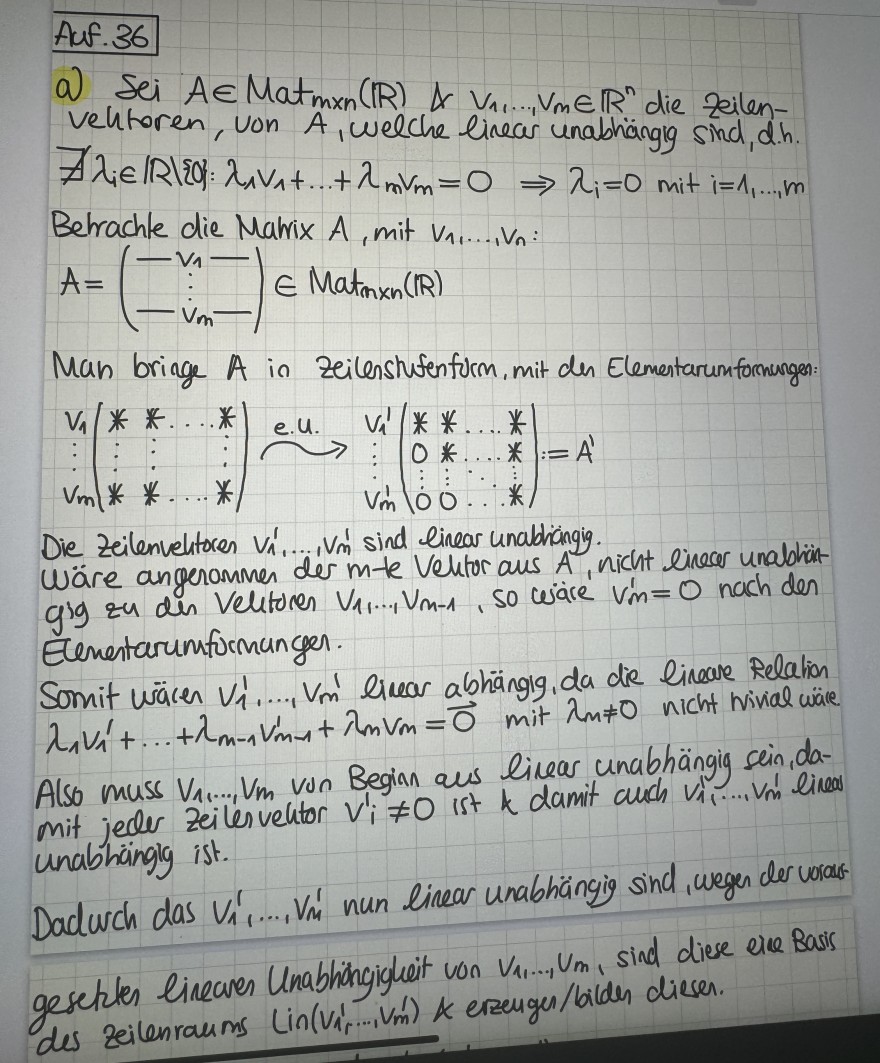 Auf. 36
a) Sei A ∈ Matmxn(ℝ) & v1,...,vm ∈ ℝⁿ die Zeilen-
vektoren, von A, welche linear unabhängig sind, d.h.
∄ λi ∈ ℝ\{0}: λ1v1+...+λmvm = 0 ⟹ λi=0 mit i=1,...,m
Betrachte die Matrix A, mit v1,...,vn:
A= ( — v1 — ⋮ — vm — ) ∈ Matmxn(ℝ)
Man bringe A in Zeilenstufenform, mit den Elementarumformungen:
v1 * * .... * e.u. v1' * * .... *
⋮ ⋮ ⋮ ⋮ ⋮ 0 * .... * := A'
vm * * .... * vm' 0 0 ... *
Die Zeilenvektoren v1',...,vm' sind linear unabhängig.
Wäre angenommen der m-te Vektor aus A', nicht linear unabhän-
gig zu den Vektoren v1,...,vm-1, so wäre vm' = 0 nach den
Elementarumformungen.
Somit wären v1',...,vm' linear abhängig, da die lineare Relation
λ1v1' + ... + λm-1vm-1' + λmvm = 0⃗ mit λm≠0 nicht trivial wäre.
Also muss v1,...,vm von Beginn aus linear unabhängig sein, da-
mit jeder Zeilenvektor vi' ≠ 0 ist & damit auch v1',...,vm' linear
unabhängig ist.
Dadurch das v1',...,vm' nun linear unabhängig sind, wegen der voraus-
gesetzten linearen Unabhängigkeit von v1,...,vm, sind diese eine Basis
des Zeilenraums Lin(v1',...,vm') & erzeugen/bilden diesen.